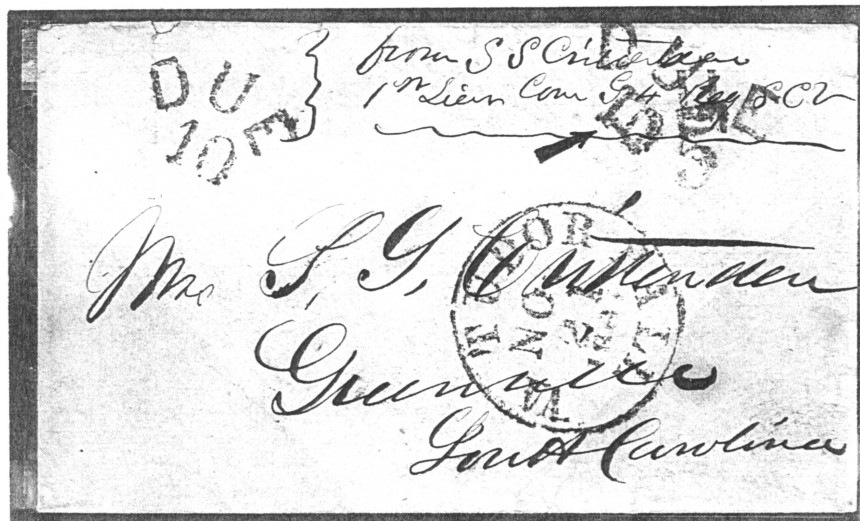 DUE
10
from S S Crittenden
1st Lieu Com G 4 Reg S C V
DUE
Mrs S, G, Crittenden
Greenville
South Carolina
TUDOR HALL
VA
NOV